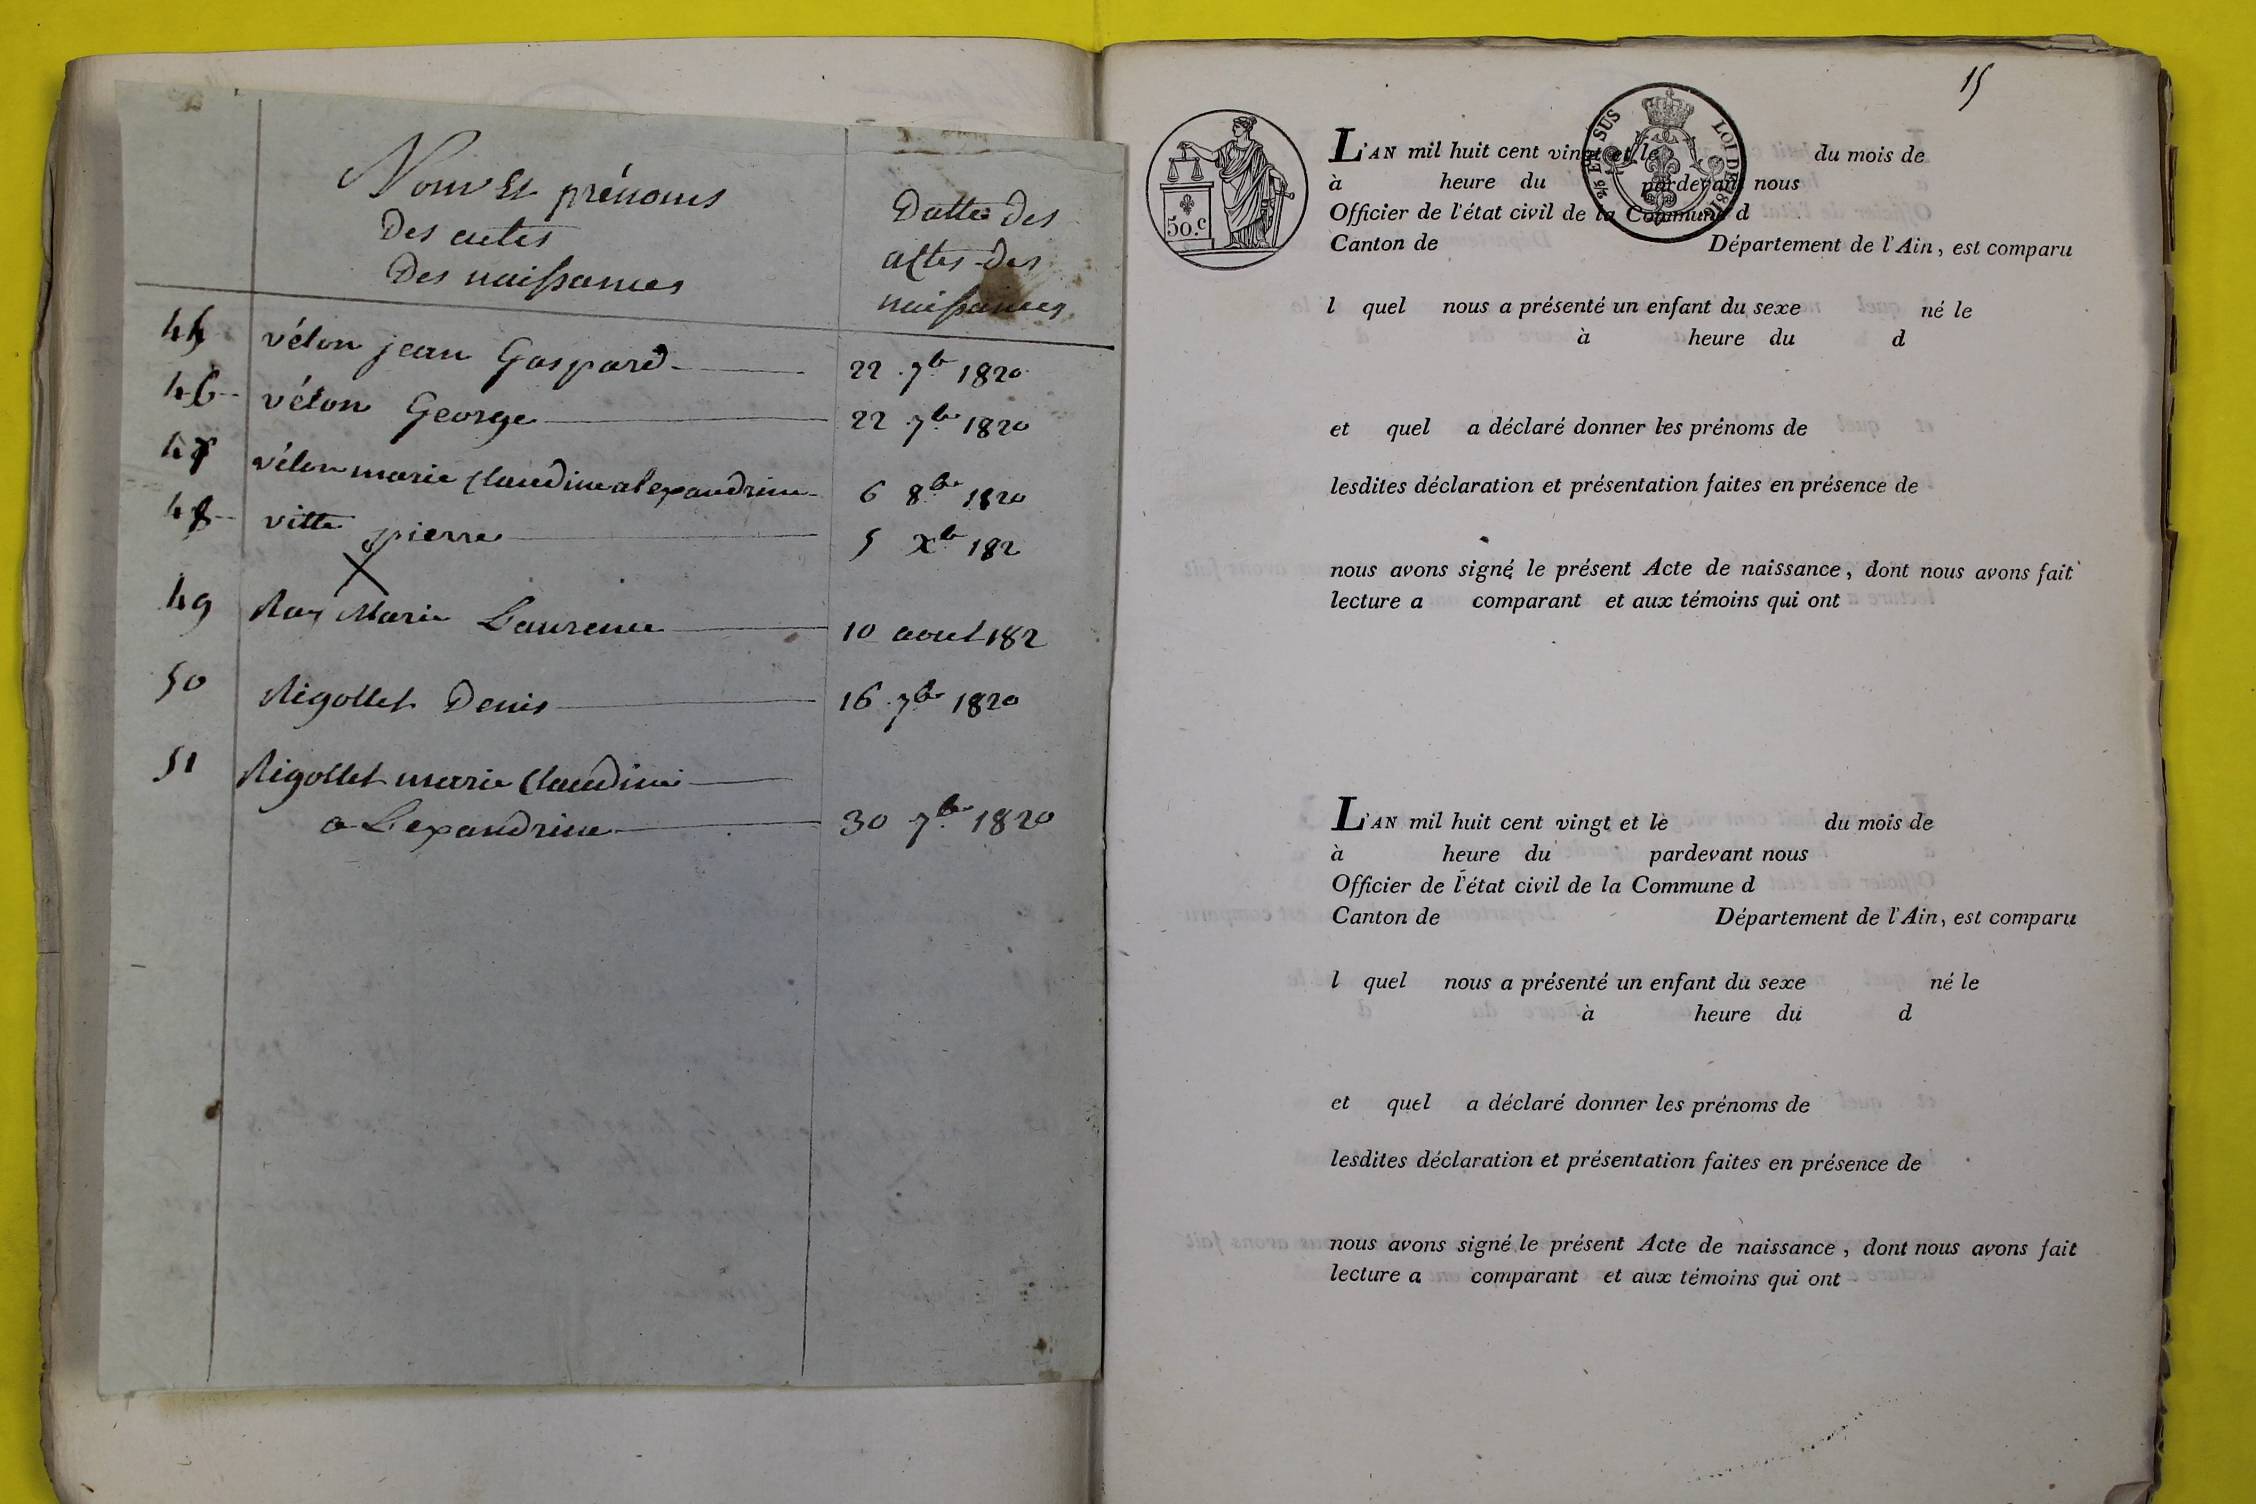 Noms Et prénoms
Des actes
Des naissances
Datte des
actes des
naissances
45 vélon jean Gaspard 22 7bre 1820
46 vélon George 22 7bre 1820
47 vélon marie Claudine alexandrine 6 8bre 1820
48 vitte pierre 5 Xbre 182
49 Ray Marie Laurence 10 aout 182
50 Rigollet Denis 16 7bre 1820
51 Rigollet marie Claudine
alexandrine 30 7bre 1820
15
50.c
5/4 EN SUS LOI DE 1816
L'AN mil huit cent vingt et le du mois de
à heure du pardevant nous
Officier de l'état civil de la Commune d
Canton de Département de l'Ain, est comparu
l quel nous a présenté un enfant du sexe né le
à heure du d
et quel a déclaré donner les prénoms de
lesdites déclaration et présentation faites en présence de
nous avons signé le présent Acte de naissance, dont nous avons fait
lecture a comparant et aux témoins qui ont
L'AN mil huit cent vingt et le du mois de
à heure du pardevant nous
Officier de l'état civil de la Commune d
Canton de Département de l'Ain, est comparu
l quel nous a présenté un enfant du sexe né le
à heure du d
et quel a déclaré donner les prénoms de
lesdites déclaration et présentation faites en présence de
nous avons signé le présent Acte de naissance, dont nous avons fait
lecture a comparant et aux témoins qui ont